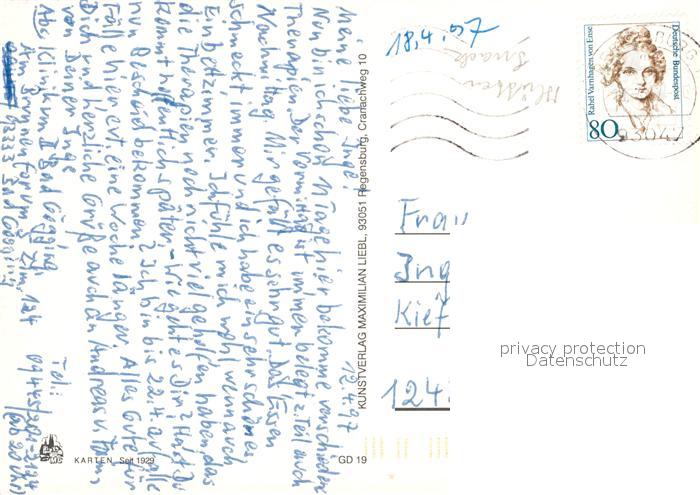 12.4.97
Meine liebe Inge!
Nun bin ich schon 11 Tage hier bekomme verschiedene
Therapien. Der Vormittag ist immer belegt z. Teil auch
Nachmittag. Mir gefällt es sehr gut. Das Essen
schmeckt immer und ich habe ein sehr schönes
Einbettzimmer. Ich fühle mich wohl wenn auch
die Therapien noch nicht viel geholfen haben, das
kommt hoffentlich später. Wie geht es Dir? Hast Du
nun Bescheid bekommen? Ich bin bis 22.4. auf alle
Fälle hier evt. eine Woche länger. Alles Gute für
Dich und herzliche Grüße auch an Andreas u.
von Deiner Inge
Abs. Klinikum Bad Gögging
Am Brunnenforum Zim. 124
93333 Bad Gögging
Tel.:
09445/201-2124
KUNSTVERLAG MAXIMILIAN LIEBL, 93051 Regensburg, Cranachweg 10
KARTEN Seit 1929
GD 19
18.4.97
Rahel Varnhagen von Ense
Deutsche Bundespost
80
93047
Frau
Ing
Kief
124
privacy protection
Datenschutz